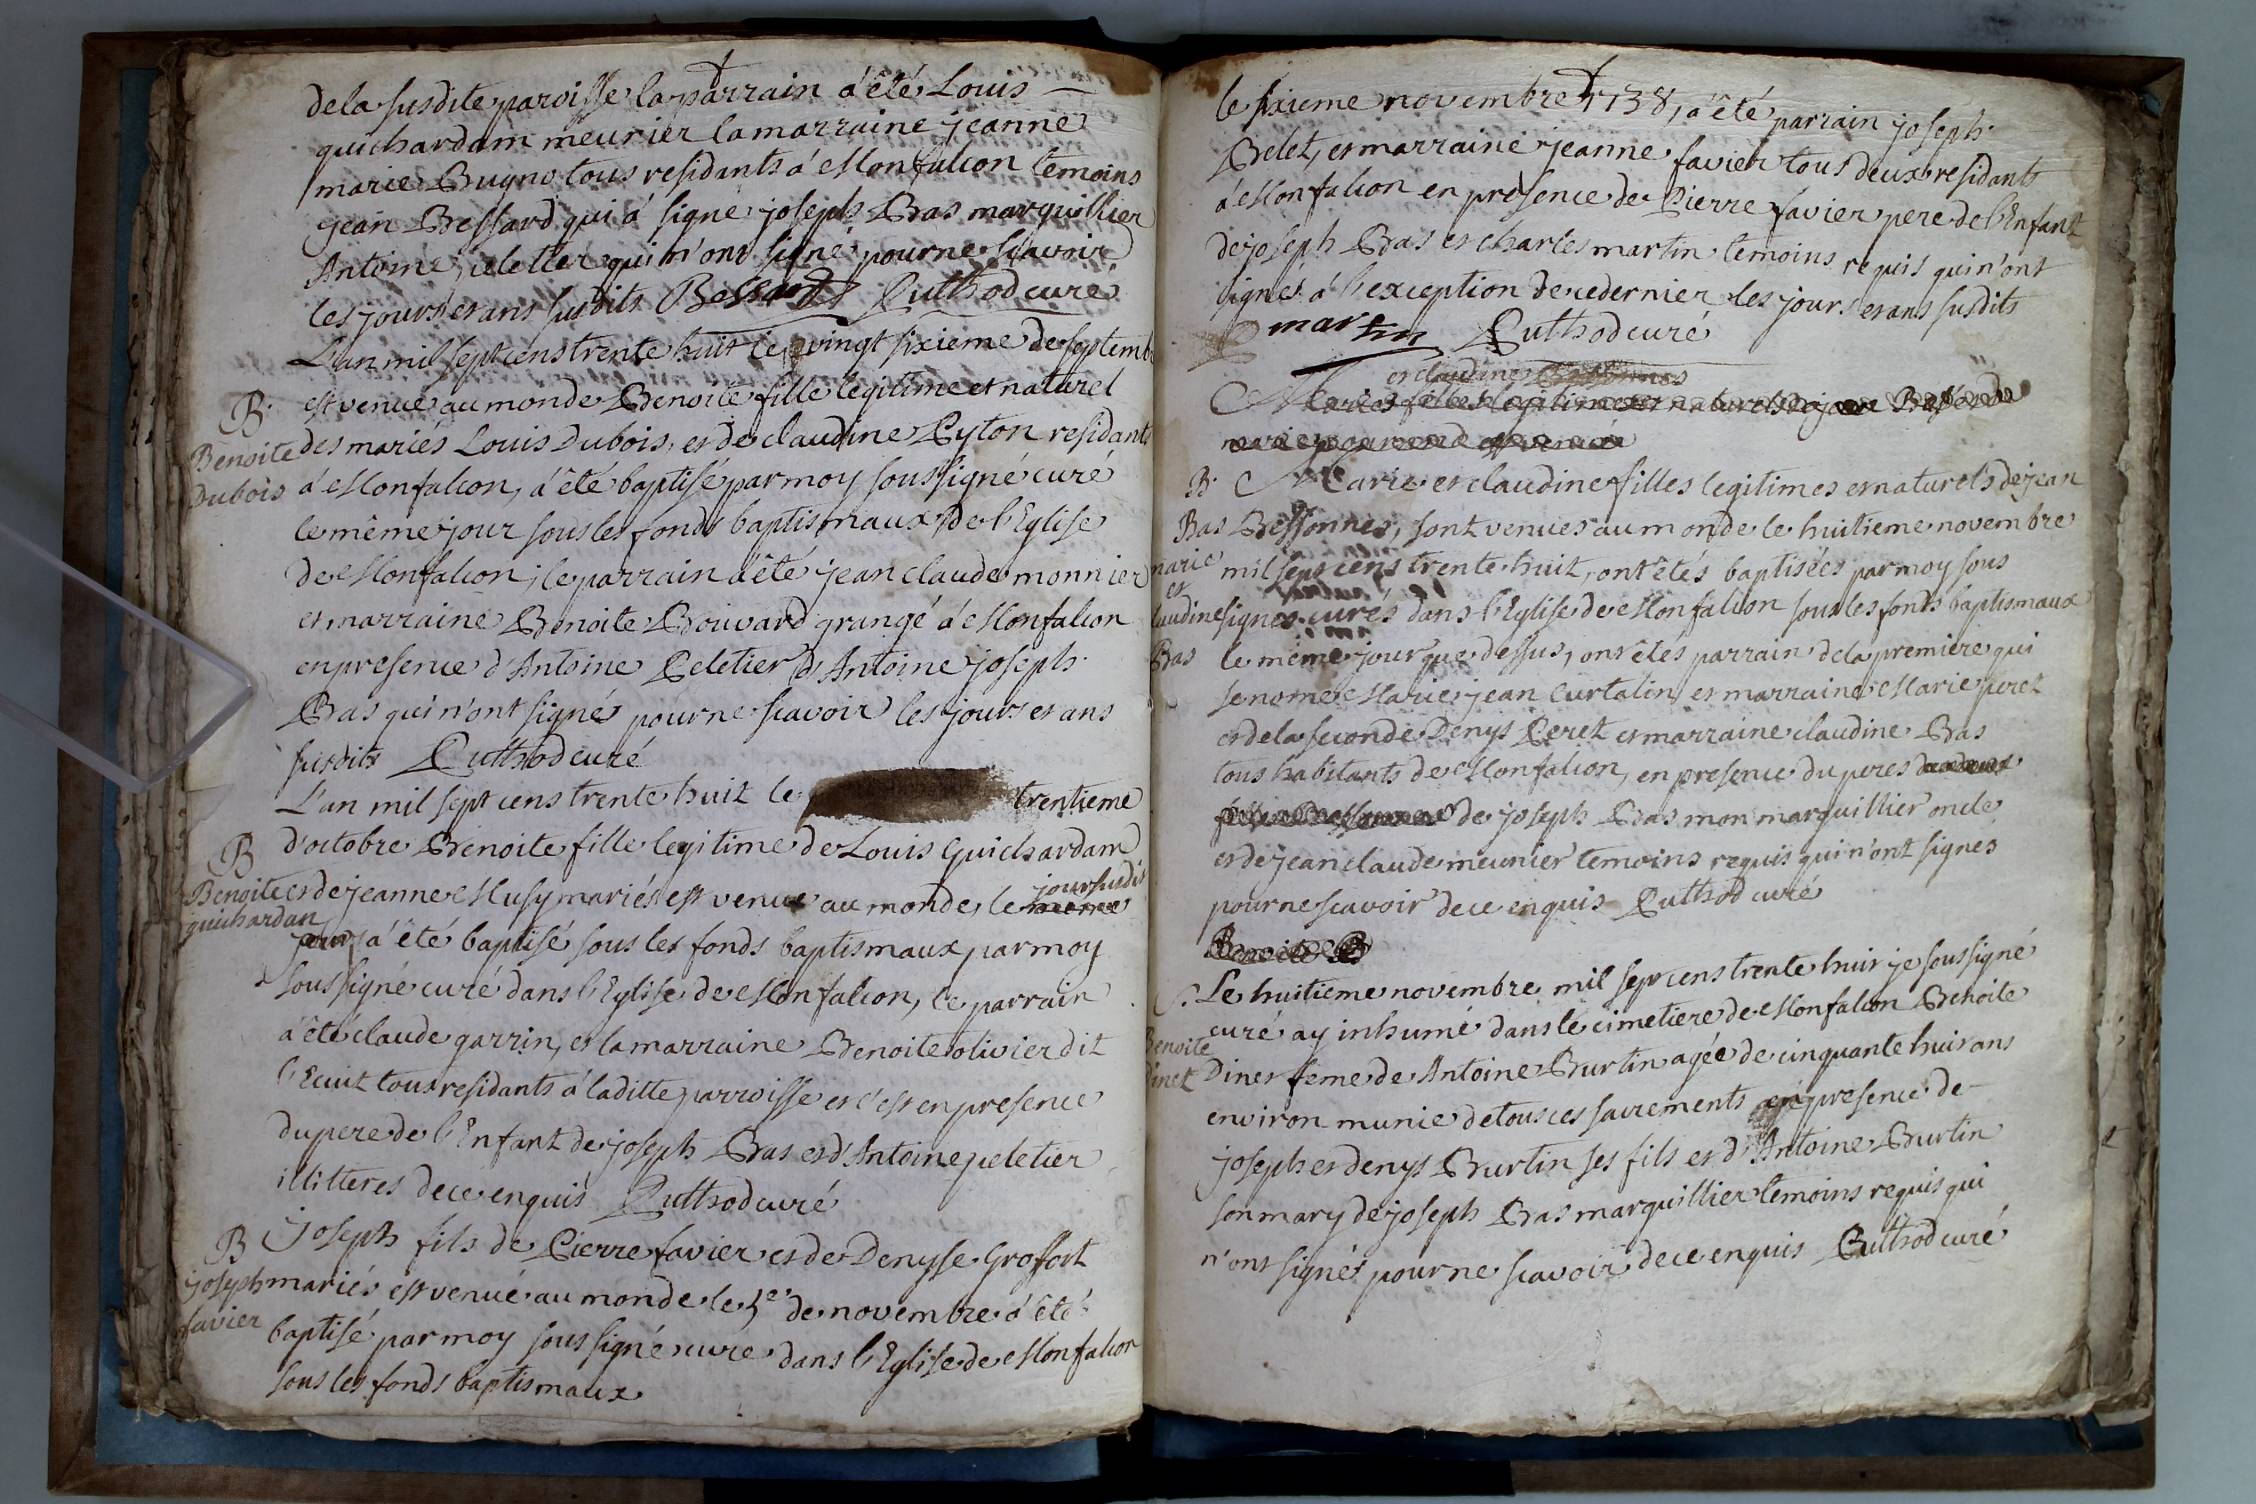 de la susdite paroisse la parrain a été Louis
guichardam meurier la marraine jeanne
marie Bugno tous residants à Monfalcon temoins
jean Bessard qui à signé joseph Bas marguillier
Antoine peletier qui n'ont signé pour ne sçavoir
les jours et ans susdits Bessard Puthod curé
L'an mil sept cens trente huit le vingt sixieme de septemb
B.
est venue au monde Benoite fille legitime et naturel
Benoite
des mariés Louis Dubois, et de claudine Pyton residants
Dubois
à Monfalcon, à été baptisé par moy soussigné curé
le même jour sous les fonds baptismaux de l'Eglise
de Monfalcon, le parrain à été jean claude monnier
et marraine Benoite Bouvard grangé à Monfalcon
en presence d'Antoine Peletier d'Antoine joseph
Bas qui n'ont signés pour ne scavoir les jours et ans
susdits Puthod curé
L'an mil sept cens trente huit le trentieme
B
d'octobre Benoite fille legitime de Louis Guichardam
Benoite
et de jeanne Musy mariés est venue au monde, le même jour susdit
guichardan
jour, à été baptisé sous les fonds baptismaux par moy
soussigné curé dans l'Eglise de Monfalcon, le parrain
à été claude garrin, et la marraine Benoite olivier dit
l'Ecuit tous residants à laditte parroisse et c'est en presence
du pere de l'Enfant de joseph Bas et d'Antoine peletier
illitteres de ce enquis Puthod curé
B
Joseph fils de Pierre favier et de Denyse Grosfort
joseph
mariés est venué au monde le 5e de novembre à été
favier
baptisé par moy soussigné cure dans l'Eglise de Monfalcon
sous les fonds baptismaux
le sixieme novembre 1738, à été parrain joseph
Belet, et marraine jeanne favier tous deux residants
à Monfalcon en présence de Pierre favier pere de l'Enfant
de joseph Bas et charles martin temoins requis qui n'ont
signés à l'exception de ce dernier les jours et ans susdits
martin Puthod curé
et claudine
Marie fille legitimes et naturels de jean
B.
Marie et claudine filles legitimes et naturels de jean
Bas
Bessonnes, sont venues au monde le huitieme novembre
marie
mil sept cens trente huit, ont étés baptisées par moy sous
et
claudine
signés curés dans l'Eglise de Monfalcon sous les fonts baptismaux
Bas
le même jour que dessus, ont étés parrain de la première qui
se nome Marie jean Curtalin et marraine Marie peret
et de la seconde Denys Peret et marraine claudine Bas
tous habitants de Monfalcon, en presence du peres
de joseph Bas mon marguillier oncle
et de jean claude meunier temoins requis qui n'ont signés
pour ne scavoir de ce enquis Puthod curé
Benoite
S.
Le huitieme novembre mil sept cens trente huit je soussigné
curé ay inhumé dans le cimetiere de Monfalcon Benoite
Benoite
Dinet
Dinet feme de Antoine Burtin agée de cinquante huit ans
environ munie de tous ces sacrements en presence de
joseph et denys Burtin ses fils et d'Antoine Burtin
son mary de joseph Bas marguillier temoins requis qui
n'ont signés pour ne scavoir de ce enquis Puthod curé